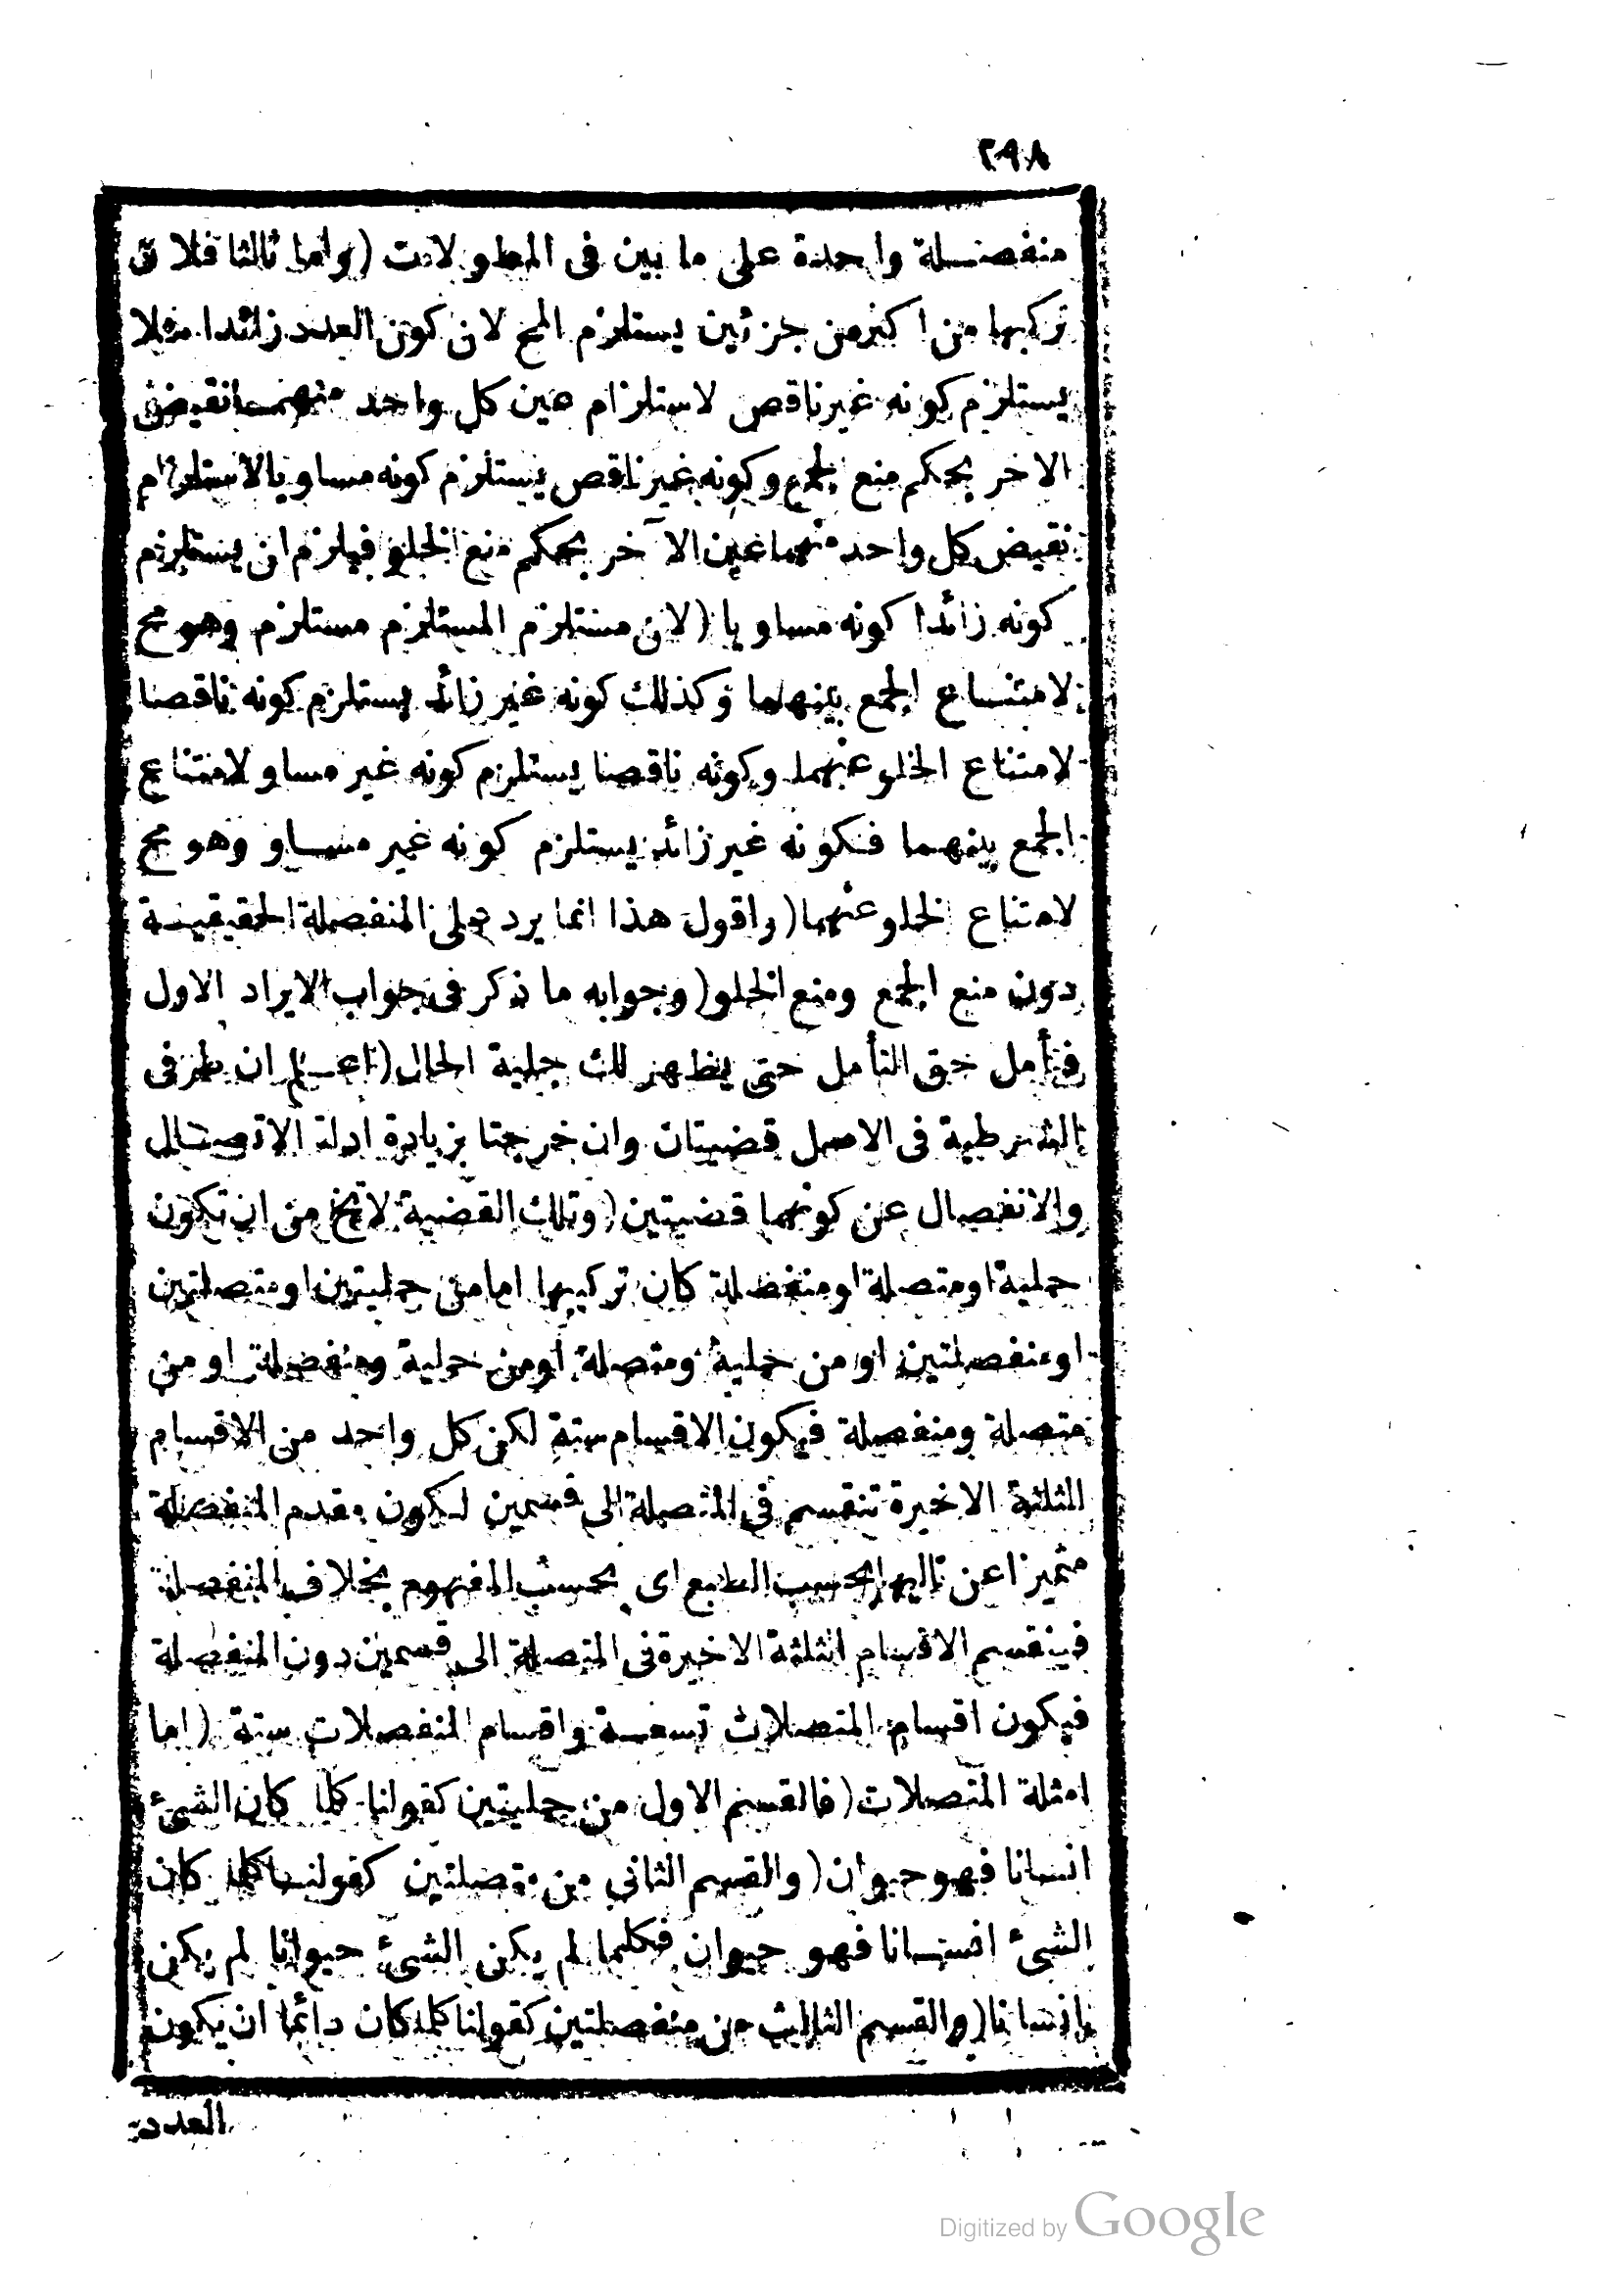 ٢٩٨
منفصلة واحدة على ما بين فى المطولات (واما ثالثا فلان
تركبها من اكثر من جزئين يستلزم المح لان كون العدد زائدا مثلا
يستلزم كونه غير ناقص لاستلزام عين كل واحد منهما نقيض
الاخر بحكم منع الجمع وكونه غير ناقص يستلزم كونه مساويا لاستلزام
نقيض كل واحد منهما عين الآخر بحكم منع الخلو فيلزم ان يستلزم
كونه زائدا كونه مساويا (لان مستلزم المستلزم مستلزم وهو مح
لامتناع الجمع بينهما وكذلك كونه غير زائد يستلزم كونه ناقصا
لامتناع الخلو عنهما وكونه ناقصا يستلزم كونه غير مساو لامتناع
الجمع بينهما فكونه غير زائد يستلزم كونه غير مساو وهو مح
لامتناع الخلو عنهما (واقول هذا انما يرد على المنفصلة الحقيقية
دون منع الجمع ومنع الخلو (وجوابه ما ذكر فى جواب الايراد الاول
فتأمل حق التأمل حتى يظهر لك جلية الحال (اعلم ان طرفى
الشرطية فى الاصل قضيتان وان خرجتا بزيادة ادلة الاتصال
والانفصال عن كونهما قضيتين (وتلك القضية لا تخ من ان تكون
حملية او متصلة او منفصلة كان تركيبها اما من حمليتين او متصلتين
او منفصلتين او من حملية ومتصلة او من حملية ومنفصلة او من
متصلة ومنفصلة فيكون الاقسام ستة لكن كل واحد من الاقسام
الثلثة الاخيرة تنقسم فى المتصلة الى قسمين لكون مقدم المنفصلة
متميزا عن تاليها بحسب الطبع اى بحسب المفهوم بخلاف المنفصلة
فينقسم الاقسام الثلثة الاخيرة فى المتصلة الى قسمين دون المنفصلة
فيكون اقسام المتصلات تسعة واقسام المنفصلات ستة (اما
امثلة المتصلات (فالقسم الاول من حمليتين كقولنا كلما كان الشئ
انسانا فهو حيوان (والقسم الثانى من متصلتين كقولنا كلما كان
الشئ انسانا فهو حيوان فكلما لم يكن الشئ حيوانا لم يكن
انسانا (والقسم الثالث من منفصلتين كقولنا كلما كان دائما ان يكون
العدد
Digitized by Google